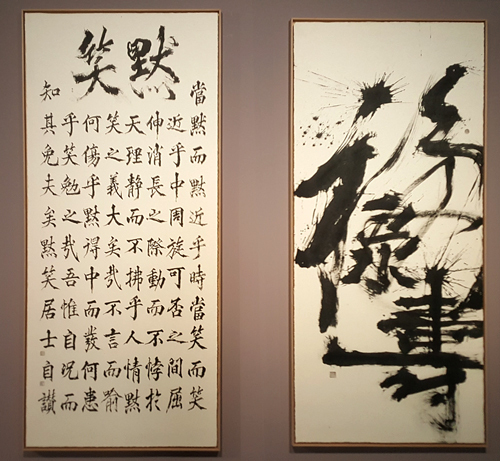 默笑
當默而默近乎時當笑而笑
近乎中周旋可否之間屈
伸消長之際動而不悖於
天理静而不拂乎人情默
笑之義大矣哉不言而喻
何傷乎默得中而發何患
乎笑勉之哉吾惟自况而
知其免夫矣默笑居士自讚